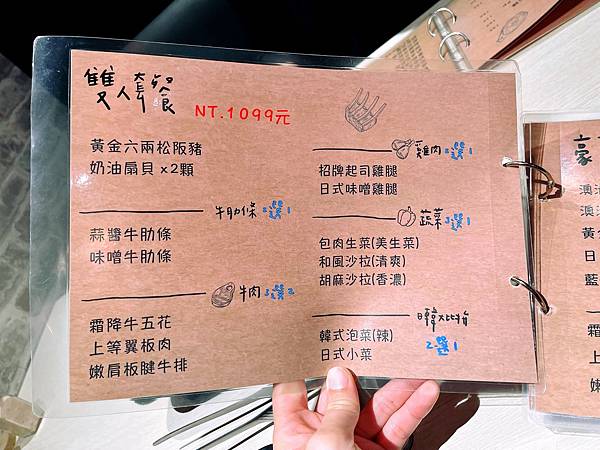 雙人套餐
NT.1099元
黃金六兩松阪豬
奶油扇貝x2顆
牛肋條 2選1
蒜醬牛肋條
味噌牛肋條
牛肉 3選2
霜降牛五花
上等翼板肉
嫩肩板腱牛排
雞肉 2選1
招牌起司雞腿
日式味噌雞腿
蔬菜 3選1
包肉生菜(美生菜)
和風沙拉(清爽)
胡麻沙拉(香濃)
日韓大比拚
2選1
韓式泡菜(辣)
日式小菜
豪
澳
澳
黃
日
藍
嫩